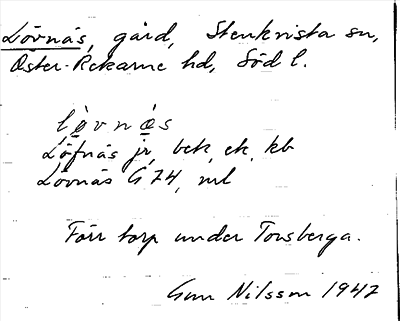 Lövnäs, gård, Stenkvista sn,
Öster-Rekarne hd, Söd l.
lövnäs
Löfnäs jr, bek, ek, kb
Lövnäs G74, ml
Förr torp under Tonsberga.
Gun Nilsson 1942